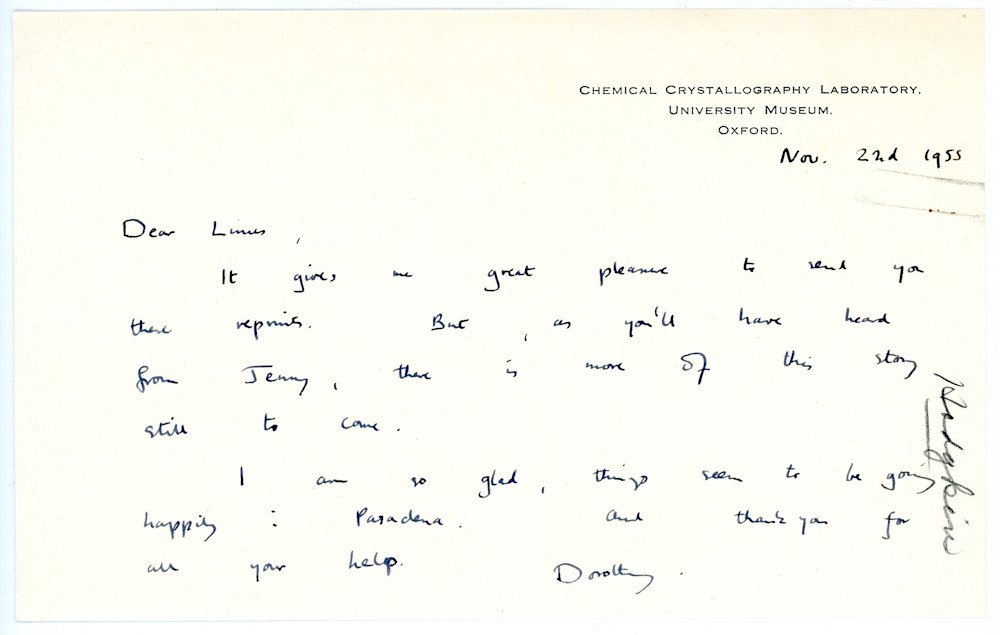 CHEMICAL CRYSTALLOGRAPHY LABORATORY,
UNIVERSITY MUSEUM,
OXFORD.
Nov. 22nd 1955
Dear Linus,
It gives me great pleasure to send you
these reprints. But, as you'll have heard
from Jenny, there is more of this story
still to come.
I am so glad, things seem to be going
happily : Pasadena. And thank you for
all your help.
Dorothy.
Hodgkin